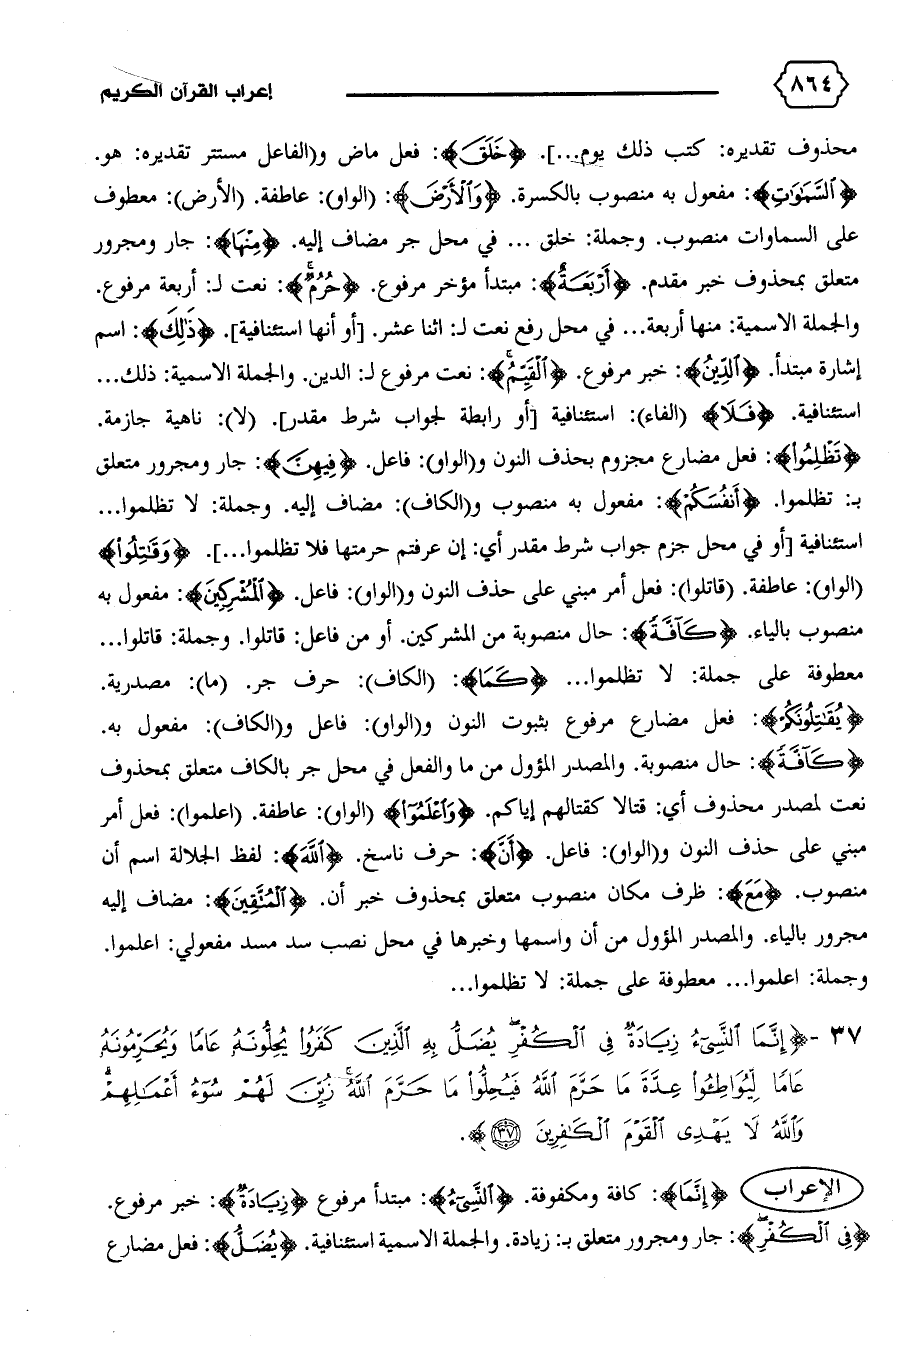 ٨٦٤ إعراب القرآن الكريم
محذوف تقديره: كتب ذلك يوم...]. ﴿خَلَقَ﴾: فعل ماض و(الفاعل مستتر تقديره: هو.
﴿السَّمَٰوَٰتِ﴾: مفعول به منصوب بالكسرة. ﴿وَٱلْأَرْضَ﴾: (الواو): عاطفة. (الأرض): معطوف
على السماوات منصوب. وجملة: خلق ... في محل جر مضاف إليه. ﴿مِنْهَآ﴾: جار ومجرور
متعلق بمحذوف خبر مقدم. ﴿أَرْبَعَةٌ﴾: مبتدأ مؤخر مرفوع. ﴿حُرُمٌ ۚ﴾: نعت لـ: أربعة مرفوع.
والجملة الاسمية: منها أربعة... في محل رفع نعت لـ: اثنا عشر. [أو أنها استئنافية]. ﴿ذَٰلِكَ﴾: اسم
إشارة مبتدأ. ﴿ٱلدِّينُ﴾: خبر مرفوع. ﴿ٱلْقَيِّمُ ۚ﴾: نعت مرفوع لـ: الدين. والجملة الاسمية: ذلك...
استئنافية. ﴿فَلَا﴾ (الفاء): استئنافية [أو رابطة لجواب شرط مقدر]. (لا): ناهية جازمة.
﴿تَظْلِمُوا۟﴾: فعل مضارع مجزوم بحذف النون و(الواو): فاعل. ﴿فِيهِنَّ﴾: جار ومجرور متعلق
بـ: تظلموا. ﴿أَنفُسَكُمْ﴾: مفعول به منصوب و(الكاف): مضاف إليه. وجملة: لا تظلموا...
استئنافية [أو في محل جزم جواب شرط مقدر أي: إن عرفتم حرمتها فلا تظلموا...]. ﴿وَقَٰتِلُوا۟﴾
(الواو): عاطفة. (قاتلوا): فعل أمر مبني على حذف النون و(الواو): فاعل. ﴿ٱلْمُشْرِكِينَ﴾: مفعول به
منصوب بالياء. ﴿كَآفَّةً﴾: حال منصوبة من المشركين. أو من فاعل: قاتلوا. وجملة: قاتلوا...
معطوفة على جملة: لا تظلموا... ﴿كَمَا﴾: (الكاف): حرف جر. (ما): مصدرية.
﴿يُقَٰتِلُونَكُمْ﴾: فعل مضارع مرفوع بثبوت النون و(الواو): فاعل و(الكاف): مفعول به.
﴿كَآفَّةً﴾: حال منصوبة. والمصدر المؤول من ما والفعل في محل جر بالكاف متعلق بمحذوف
نعت لمصدر محذوف أي: قتالا كقتالهم إياكم. ﴿وَٱعْلَمُوٓا۟﴾ (الواو): عاطفة. (اعلموا): فعل أمر
مبني على حذف النون و(الواو): فاعل. ﴿أَنَّ﴾: حرف ناسخ. ﴿ٱللَّهَ﴾: لفظ الجلالة اسم أن
منصوب. ﴿مَعَ﴾: ظرف مكان منصوب متعلق بمحذوف خبر أن. ﴿ٱلْمُتَّقِينَ﴾: مضاف إليه
مجرور بالياء. والمصدر المؤول من أن واسمها وخبرها في محل نصب سد مسد مفعولي: اعلموا.
وجملة: اعلموا... معطوفة على جملة: لا تظلموا...
٣٧ -﴿إِنَّمَا ٱلنَّسِىٓءُ زِيَادَةٌ فِى ٱلْكُفْرِ ۖ يُضَلُّ بِهِ ٱلَّذِينَ كَفَرُوا۟ يُحِلُّونَهُۥ عَامًا وَيُحَرِّمُونَهُۥ
عَامًا لِّيُوَاطِـُٔوا۟ عِدَّةَ مَا حَرَّمَ ٱللَّهُ فَيُحِلُّوا۟ مَا حَرَّمَ ٱللَّهُ ۚ زُيِّنَ لَهُمْ سُوٓءُ أَعْمَٰلِهِمْ ۗ
وَٱللَّهُ لَا يَهْدِى ٱلْقَوْمَ ٱلْكَٰفِرِينَ ٣٧﴾.
الإعراب ﴿إِنَّمَا﴾: كافة ومكفوفة. ﴿ٱلنَّسِىٓءُ﴾: مبتدأ مرفوع ﴿زِيَادَةٌ﴾: خبر مرفوع.
﴿فِى ٱلْكُفْرِ ۖ﴾: جار ومجرور متعلق بـ: زيادة. والجملة الاسمية استئنافية. ﴿يُضَلُّ﴾: فعل مضارع